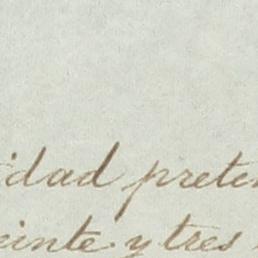 idad preten
einte y tres